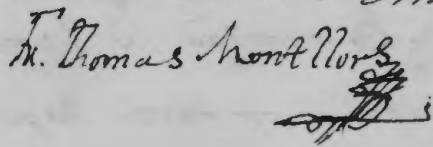 Fr. Thomas Montllors